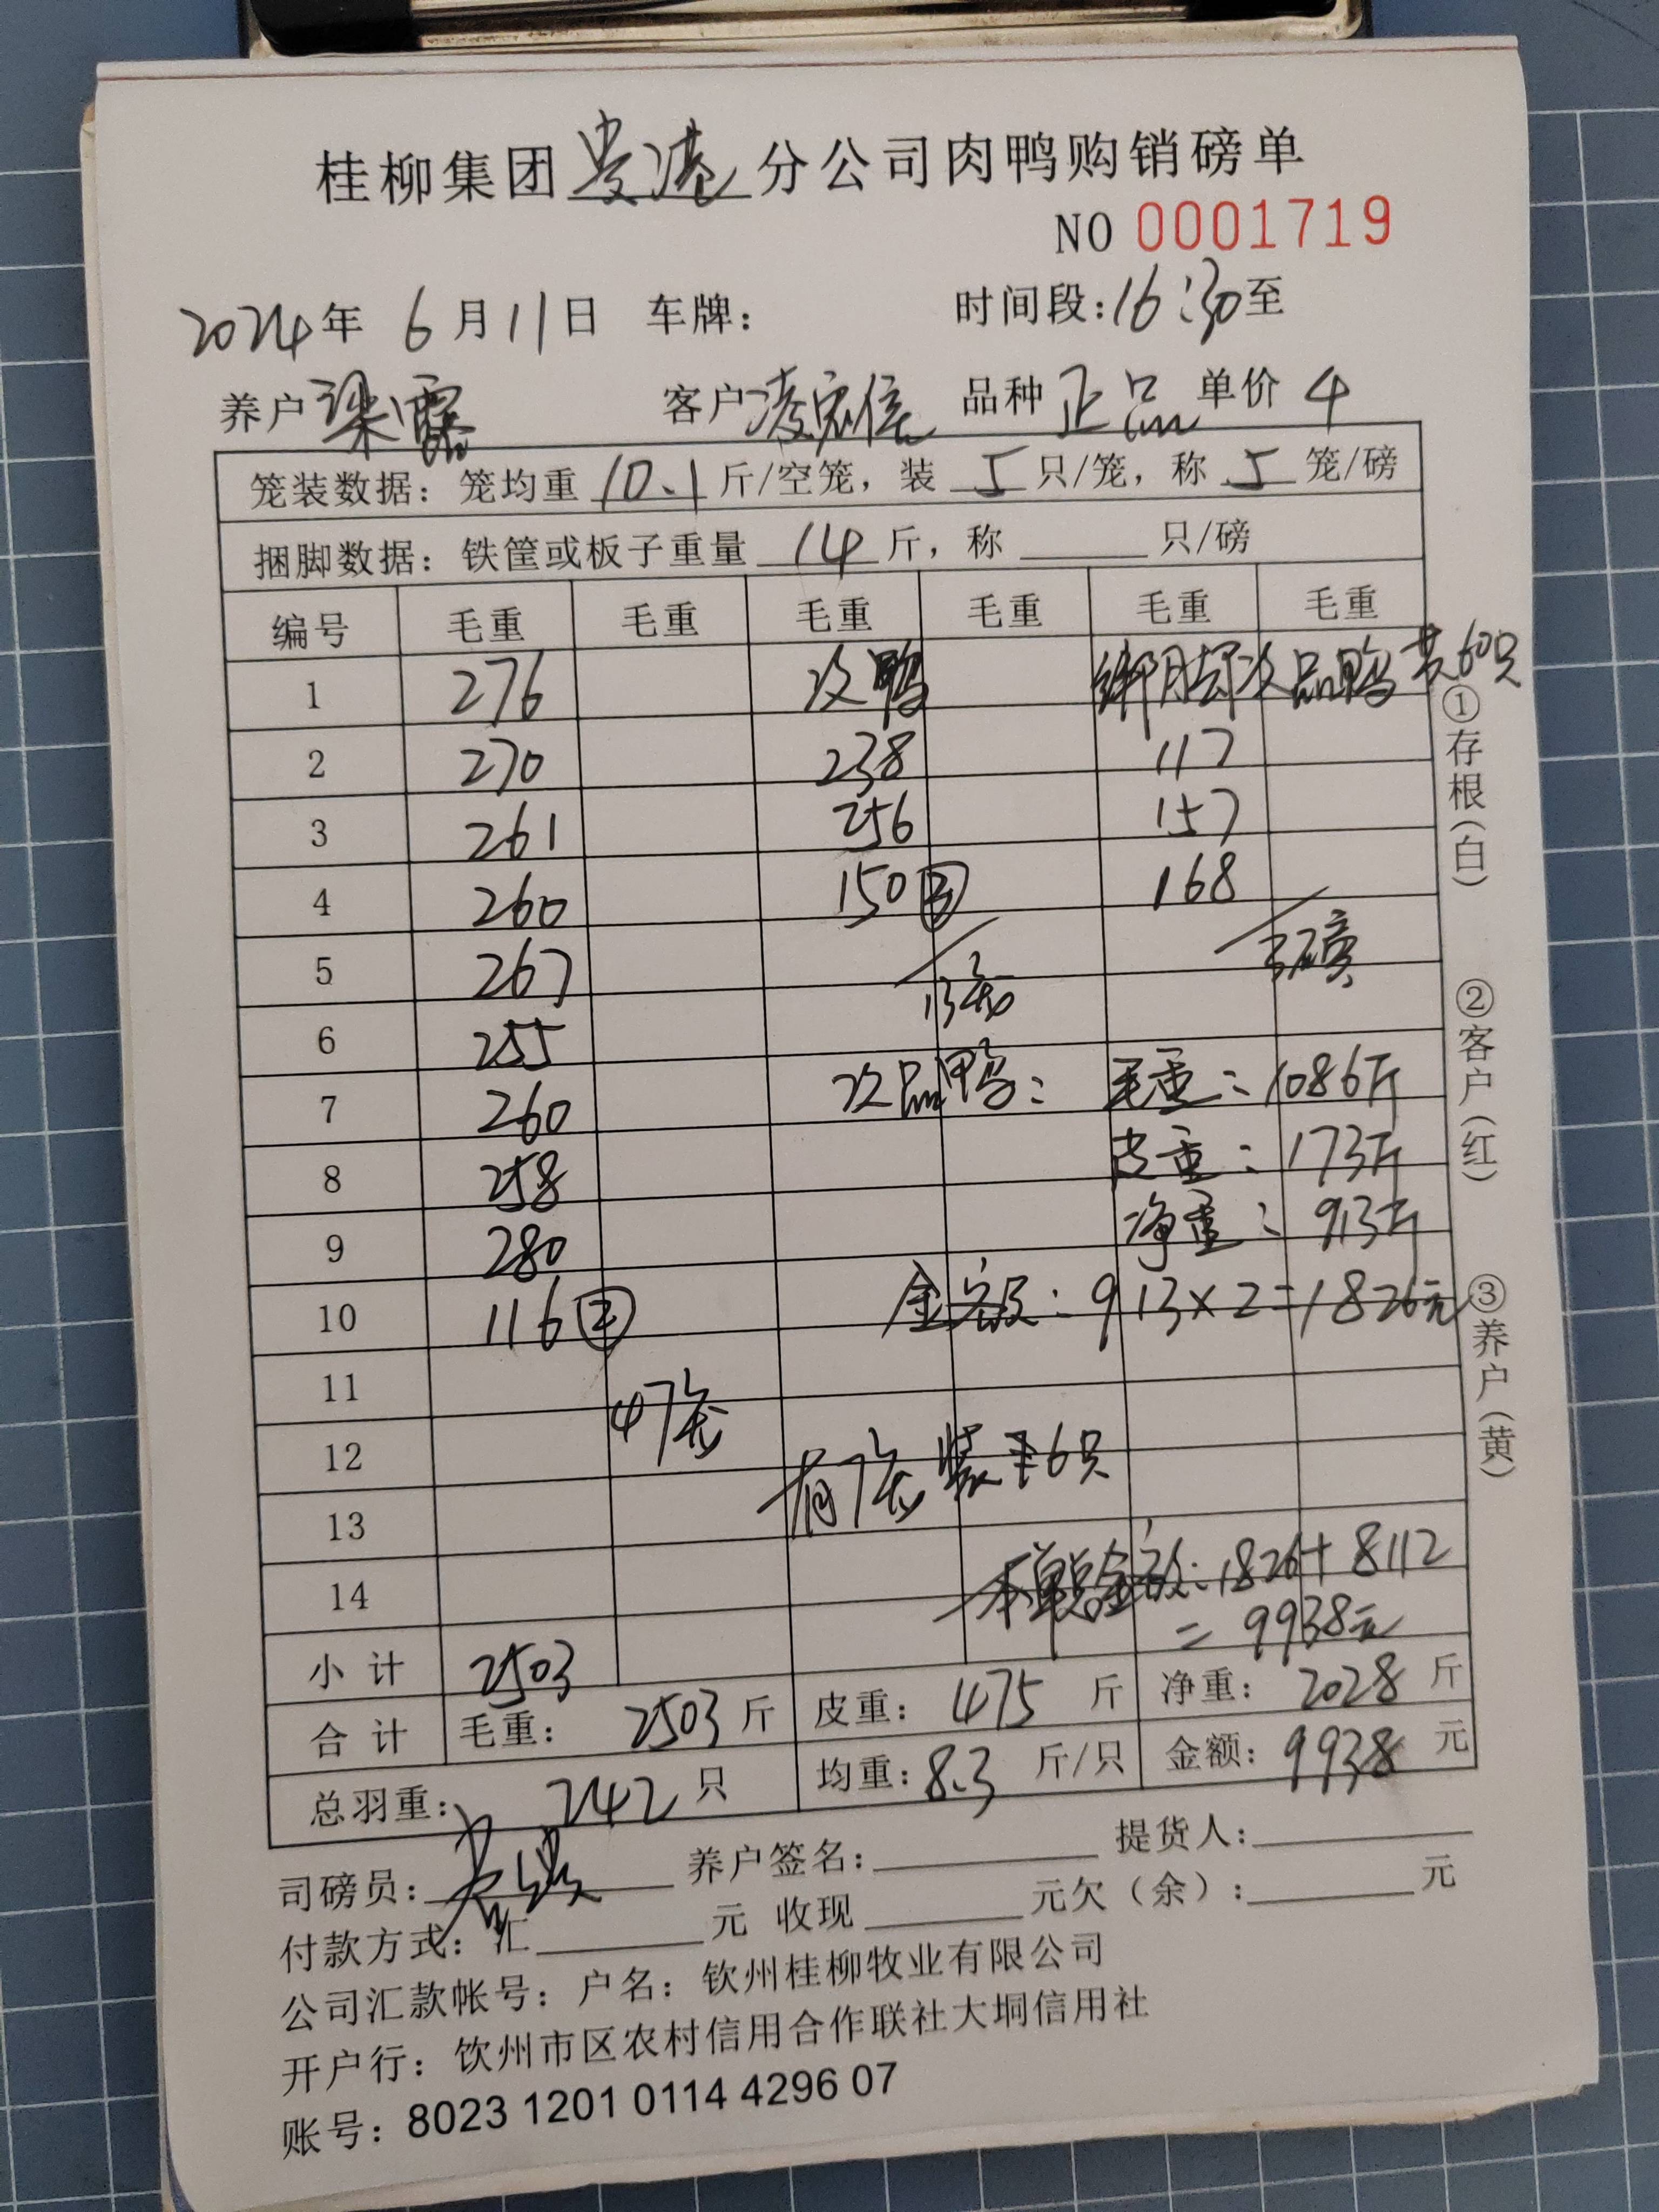 桂柳集团贵港分公司肉鸭购销磅单
NO 0001719
2024年 6月11日 车牌： 时间段：16:30至
养户 梁露 客户 凌宏信 品种 正品 单价 4
笼装数据：笼均重 10.1 斤/空笼，装 5 只/笼，称 5 笼/磅
捆脚数据：铁筐或板子重量 14 斤，称 只/磅
编号 毛重 毛重 毛重 毛重 毛重 毛重
1 276 次鸭 绑脚次品鸭共60只
2 270 238 117
3 261 256 157
4 260 150③ 168
5 267 13笼 3磅
6 255
7 260 次品鸭： 毛重：1086斤
8 258 皮重：173斤
9 280 净重：913斤
10 116② 金额：913×2=1826元
11 47笼
12 有7笼装6只
13
14 本单总金额：1826+8112
=9938元
小计 2503
合计 毛重：2503斤 皮重：475斤 净重：2028斤
总羽重：242只 均重：8.3斤/只 金额：9938元
司磅员： 养户签名： 提货人：
付款方式：汇 元 收现 元欠（余）： 元
公司汇款帐号：户名：钦州桂柳牧业有限公司
开户行：钦州市区农村信用合作联社大垌信用社
账号：8023 1201 0114 4296 07
①存根（白）
②客户（红）
③养户（黄）